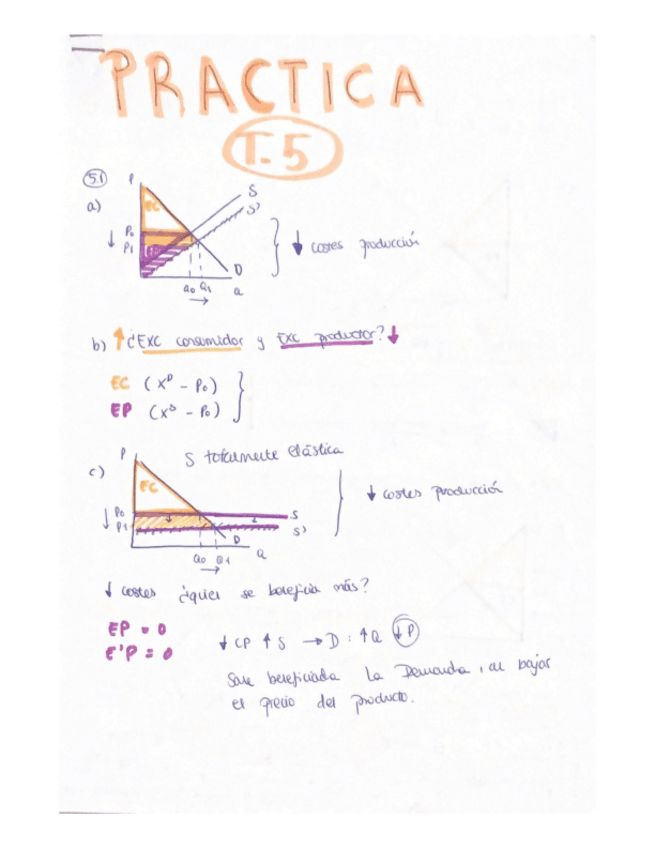 PRACTICA
T.5
5.1
a)
P
EC
S
S'
P0
P1
EP
D
Q0 Q1 Q
↓ costes producción
b) ↑ ¿Exc consumidor y Exc productor? ↓
EC (X^D - P0)
EP (X^S - P0)
S totalmente elástica
c)
P
EC
P0
P1
S
S'
D
Q0 Q1 Q
↓ costes producción
↓ costes ¿quien se beneficia más?
EP = 0
E'P = 0
↓ CP ↑ S → D : ↑ Q ↓ P
Sale beneficiada la Demanda, al bajar
el precio del producto.